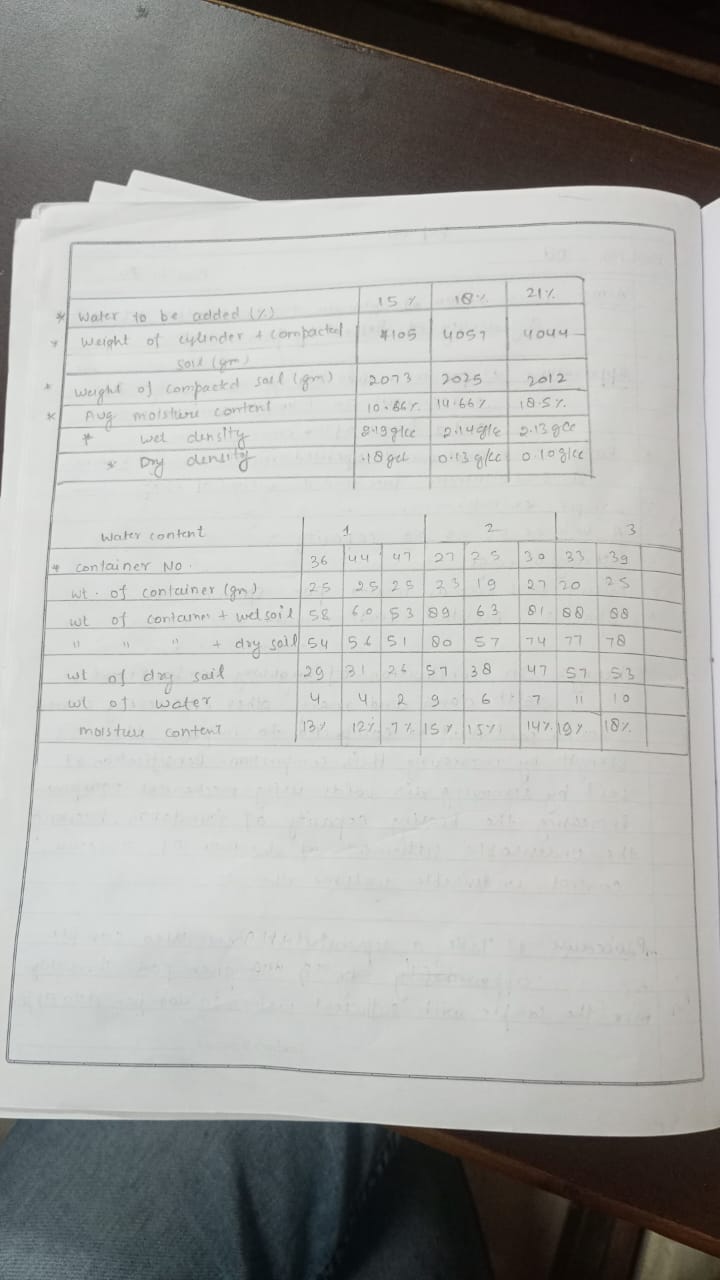 15 % 18% 21%
* Water to be added (%)
* Weight of cylinder + compacted 4105 4057 4044
soil (gm)
* weight of compacted soil (gm) 2073 2025 2012
* Avg moisture content 10.66% 14.66% 18.5%
* wet density 2.19g/cc 2.14g/cc 2.13gcc
* Dry density .18 0.13 g/cc 0.10g/cc
Water content 1 2 3
* container No. 36 44 47 27 25 30 33 39
wt. of container (gm) 25 25 25 23 19 27 20 25
wt of container + wet soil 58 60 53 89 63 81 88 88
" " " + dry soil 54 56 51 80 57 74 77 78
wt of dry soil 29 31 26 57 38 47 57 53
wt of water 4 4 2 9 6 7 11 10
moisture content 13% 12% 7% 15% 15% 14% 19% 18%